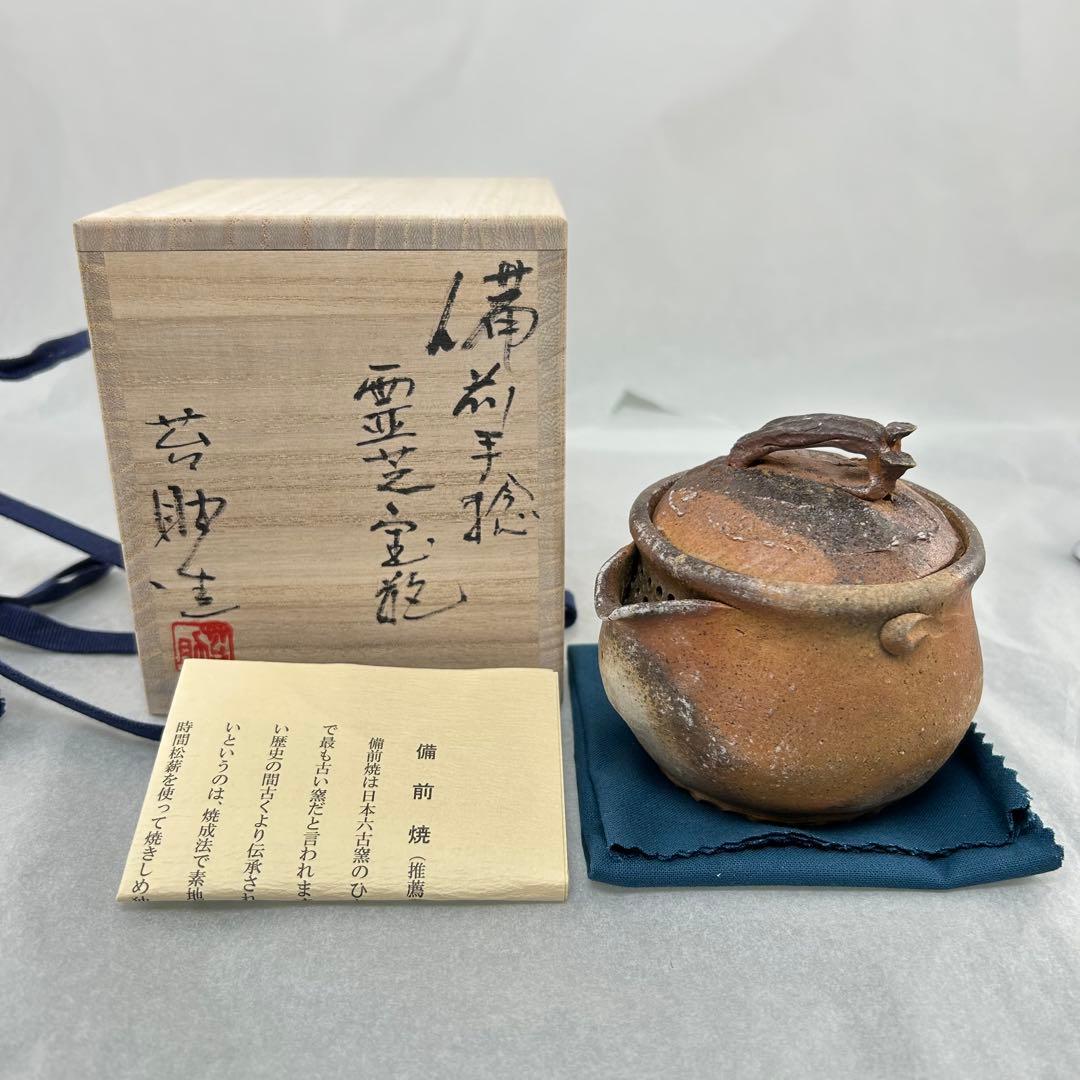 備前手捻
霊芝宝瓶
苔助造
備前焼(推薦
備前焼は日本六古窯のひ
で最も古い窯だと言われま
い歴史の間古くより伝承され
いというのは、焼成法で素地
時間松薪を使って焼きしめ